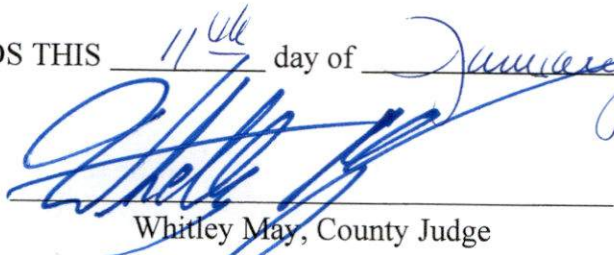 OS THIS 11th day of January
Whitley May, County Judge